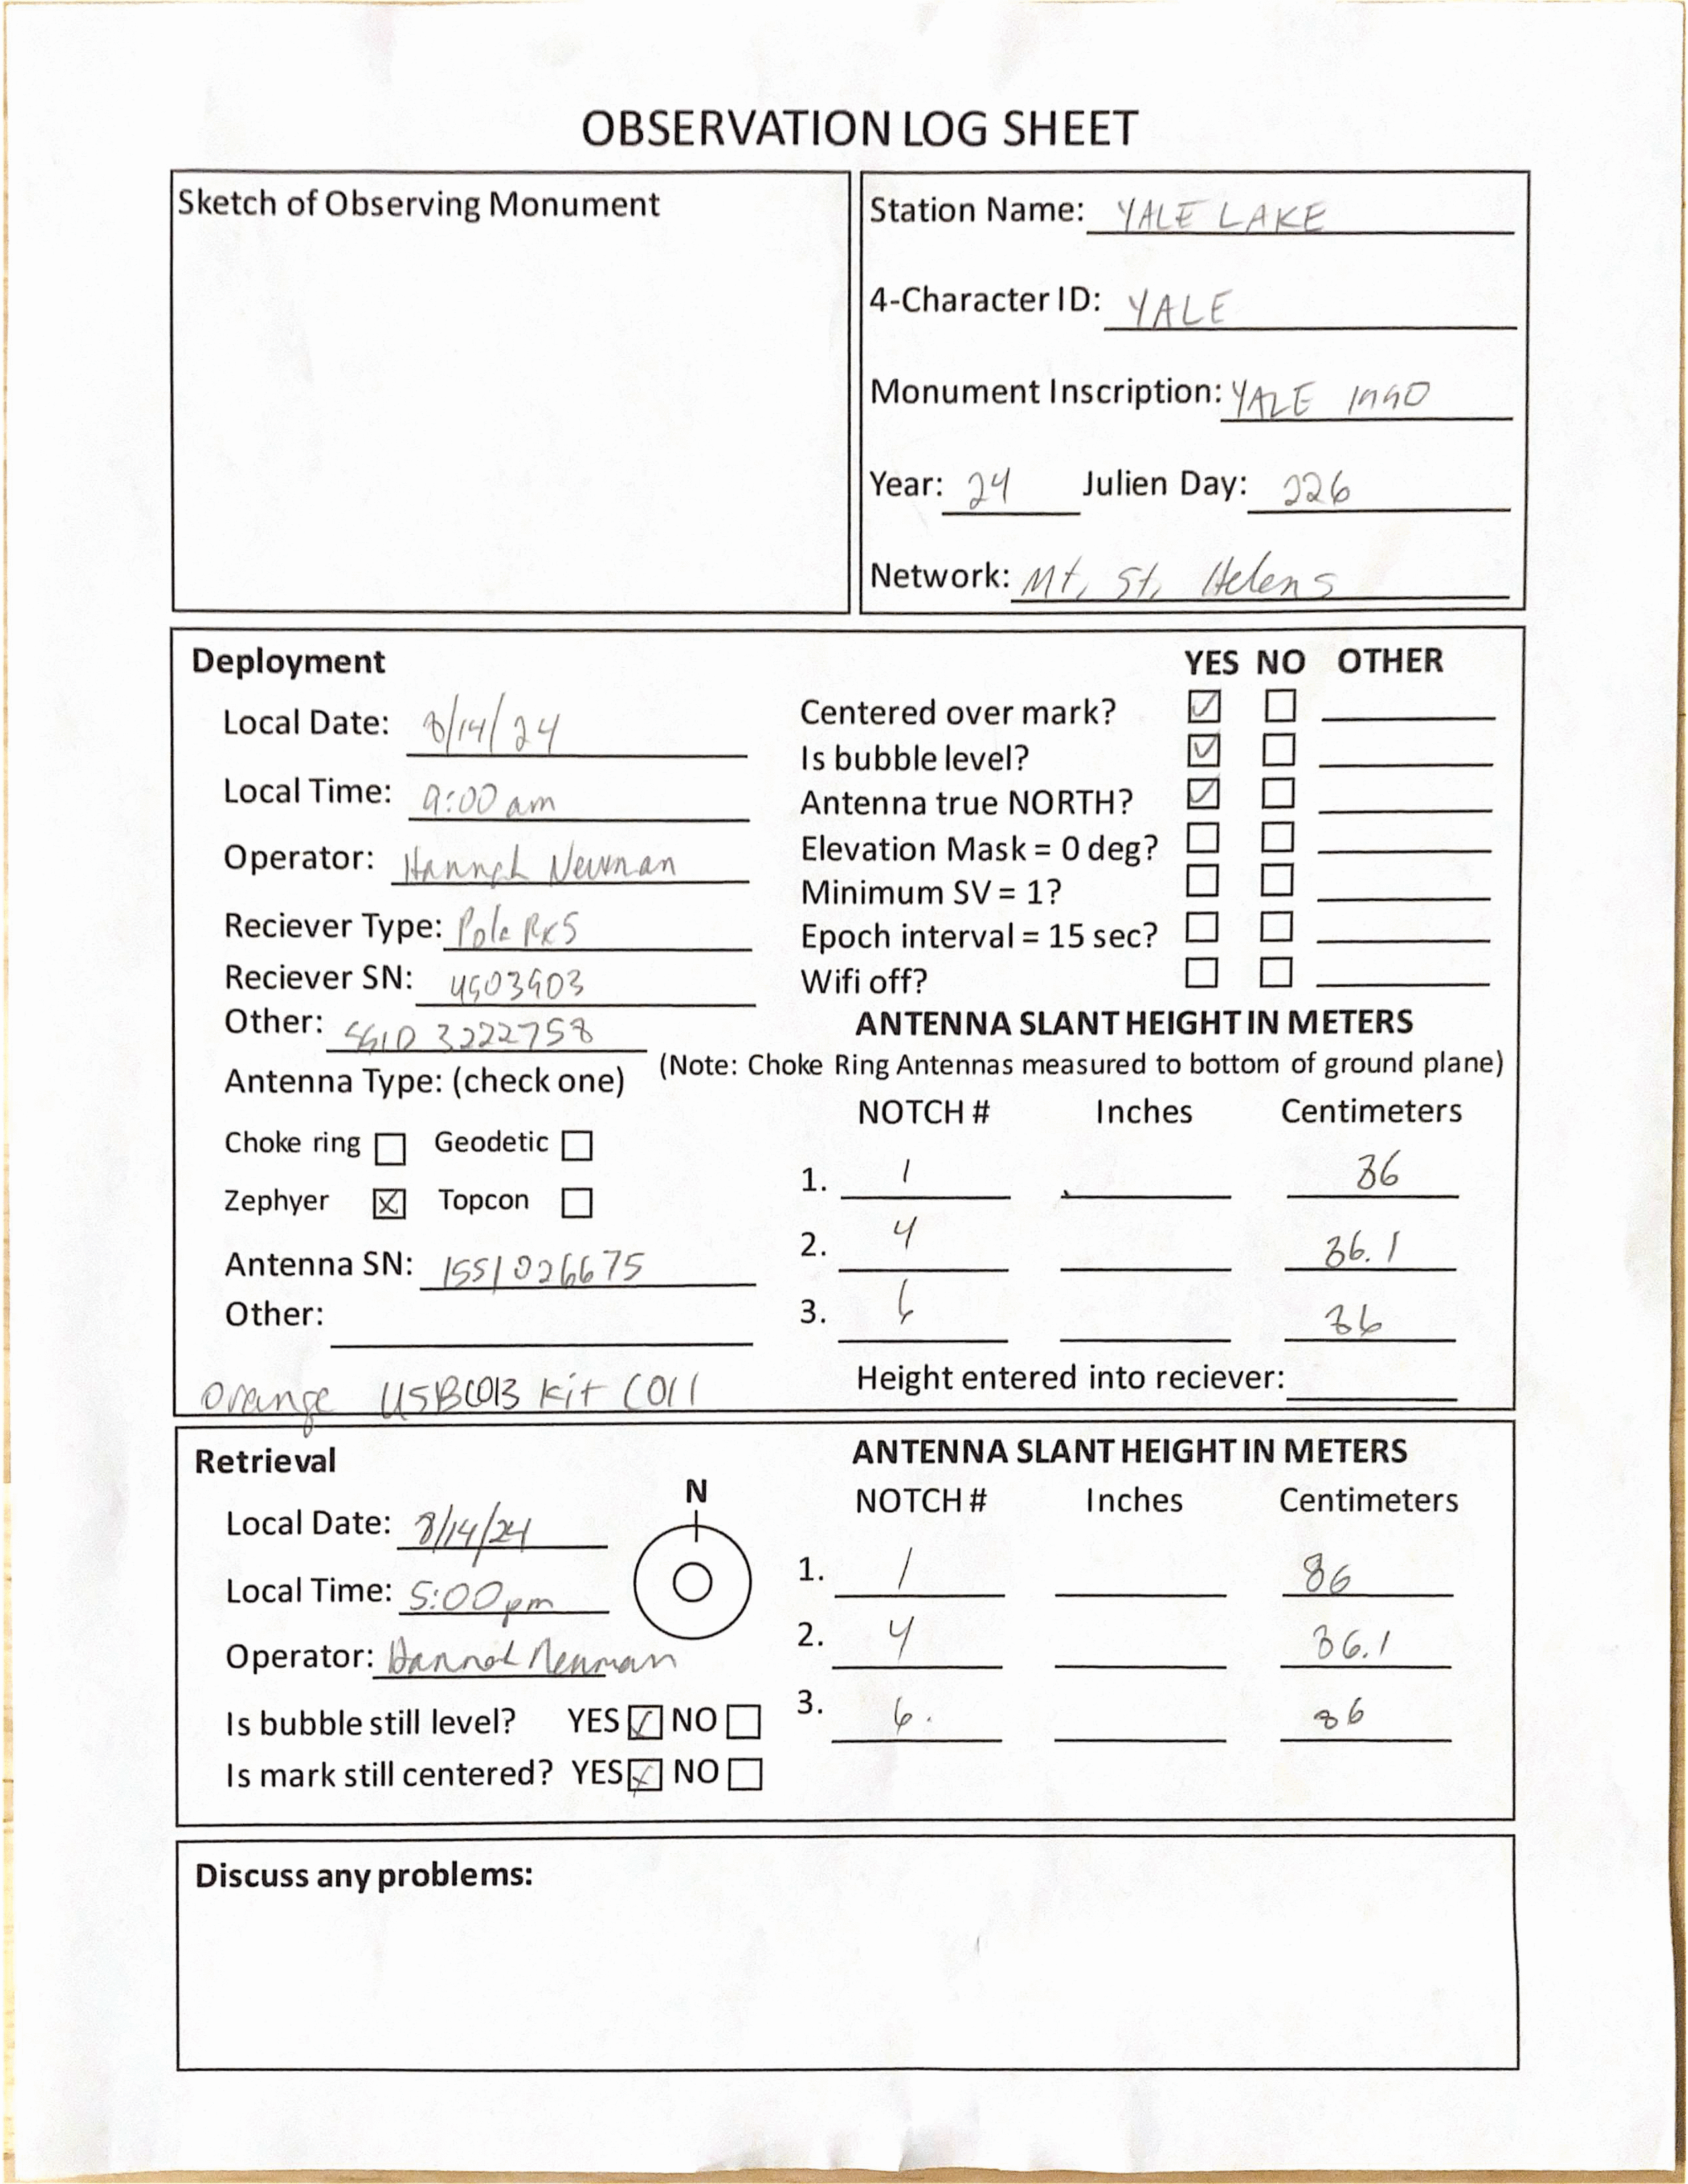 OBSERVATION LOG SHEET
Sketch of Observing Monument
Station Name: YALE LAKE
4-Character ID: YALE
Monument Inscription: YALE 1990
Year: 24 Julien Day: 226
Network: Mt. St. Helens
Deployment
Local Date: 8/14/24
Local Time: 9:00 am
Operator: Hannah Newman
Reciever Type: PolaRx5
Reciever SN:
Other: 3222758
Antenna Type: (check one)
Choke ring Geodetic
Zephyer X Topcon
Antenna SN: 1551026675
Other:
Orange USBC013 Kit C011
YES NO OTHER
Centered over mark? ✓
Is bubble level? ✓
Antenna true NORTH? ✓
Elevation Mask = 0 deg?
Minimum SV = 1?
Epoch interval = 15 sec?
Wifi off?
ANTENNA SLANT HEIGHT IN METERS
(Note: Choke Ring Antennas measured to bottom of ground plane)
NOTCH # Inches Centimeters
1. 1
2. 4
3. 6
Height entered into reciever:
Retrieval
Local Date: 8/14/24
Local Time: 5:00 pm
Operator: Hannah Newman
Is bubble still level? YES ✓ NO
Is mark still centered? YES X NO
N
ANTENNA SLANT HEIGHT IN METERS
NOTCH # Inches Centimeters
1. 1 86
2. 4
3. 6. 86
Discuss any problems: